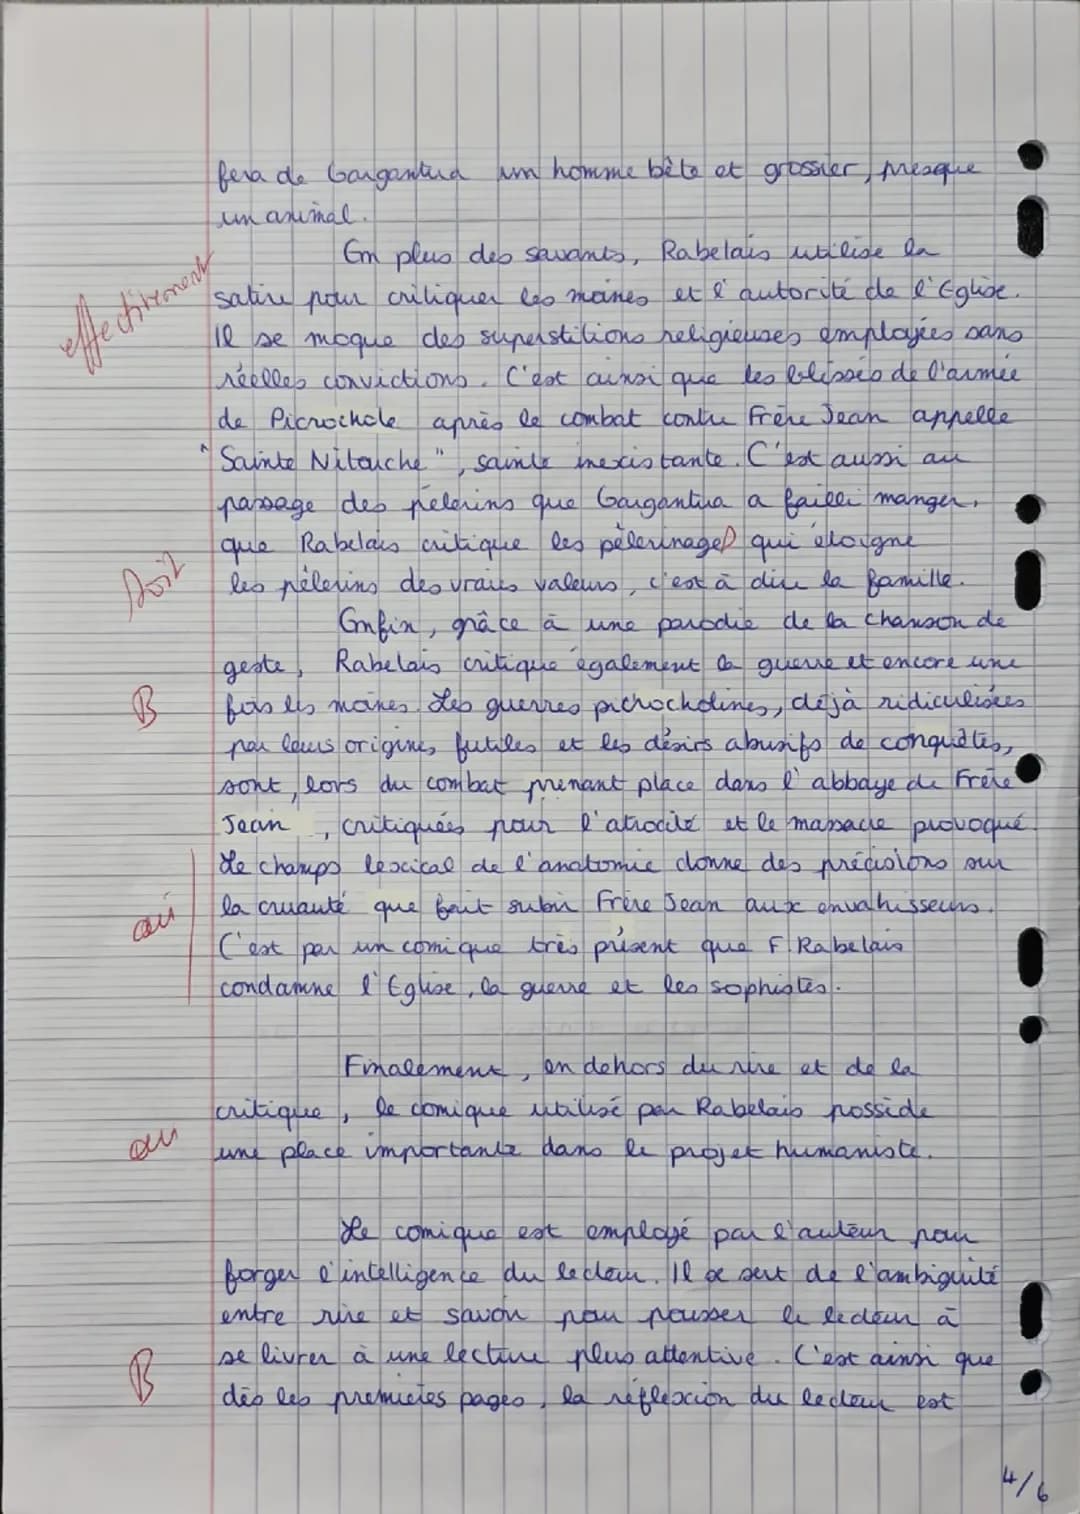 fera de Gargantua un homme bête et grossier, presque
un animal.
En plus des savants, Rabelais utilise la
effectivement
satire pour critiquer les moines et l'autorité de l'Eglise.
Il se moque des superstitions religieuses employées sans
réelles convictions. C'est ainsi que les blessés de l'armée
de Picrochole après le combat contre Frère Jean appelle
"Sainte Nitouche", sainte inexistante. C'est aussi au
passage des pélerins que Gargantua a failli manger,
que Rabelais critique les pèlerinages qui éloigne
les pélerins des vraies valeurs, c'est à dire la famille.
Enfin, grâce à une parodie de la chanson de
geste, Rabelais critique également la guerre et encore une
B
fois les moines. Les guerres picrocholines, déjà ridiculisées
par leurs origines futiles et les désirs abusifs de conquêtes,
sont, lors du combat prenant place dans l'abbaye de Frère
Jean, critiquées pour l'atrocité et le massacre provoqué.
Le champs lexical de l'anatomie donne des précisions sur
oui
la cruauté que fait subir Frère Jean aux envahisseurs.
C'est par un comique très présent que F. Rabelais
condamne l'Eglise, la guerre et les sophistes.
Finalement, en dehors du rire et de la
critique, le comique utilisé par Rabelais possède
oui
une place importante dans le projet humaniste.
Le comique est employé par l'auteur pour
forger l'intelligence du lecteur. Il se sert de l'ambiguité
entre rire et savoir pour pousser le lecteur à
B
se livrer à une lecture plus attentive. C'est ainsi que
dès les premières pages, la réflexion du lecteur est
4/6